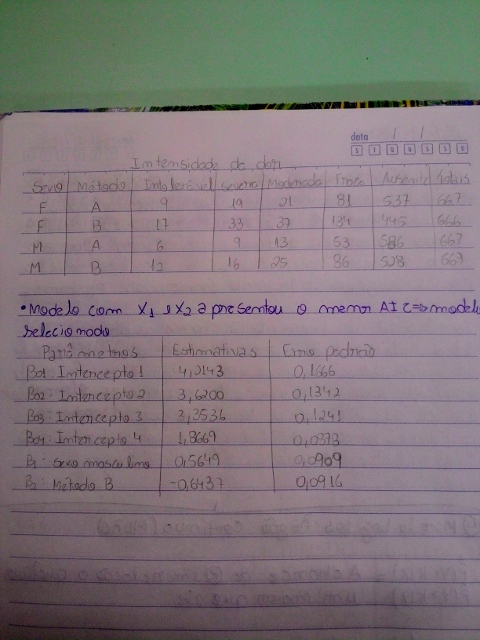 data / /
S T Q Q S S D
Intensidade de dor
Sexo Método Intolerável Severa Moderada Fraca Ausente Totais
F A 9 19 21 81 537 667
F B 17 33 37 134 445 666
M A 6 9 13 53 586 667
M B 12 16 25 86 528 667
• Modelo com X1 e X2 apresentou o menor AIC => modelo
selecionado
Parâmetros Estimativas Erro padrão
B01: Intercepto 1 4,2143 0,1666
B02: Intercepto 2 3,6200 0,1342
B03: Intercepto 3 3,3536 0,1241
B04: Intercepto 4 1,8669 0,0373
B1: Sexo masculino 0,5649 0,0909
B2: Método B -0,6437 0,0916